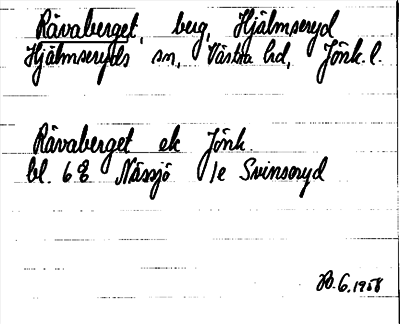 Rävaberget, berg, Hjälmseryd
Hjälmseryds sn, Västra hd, Jönk. l.
Rävaberget ek Jönk.
bl. 6E Nässjö 1e Svinseryd
6.1958